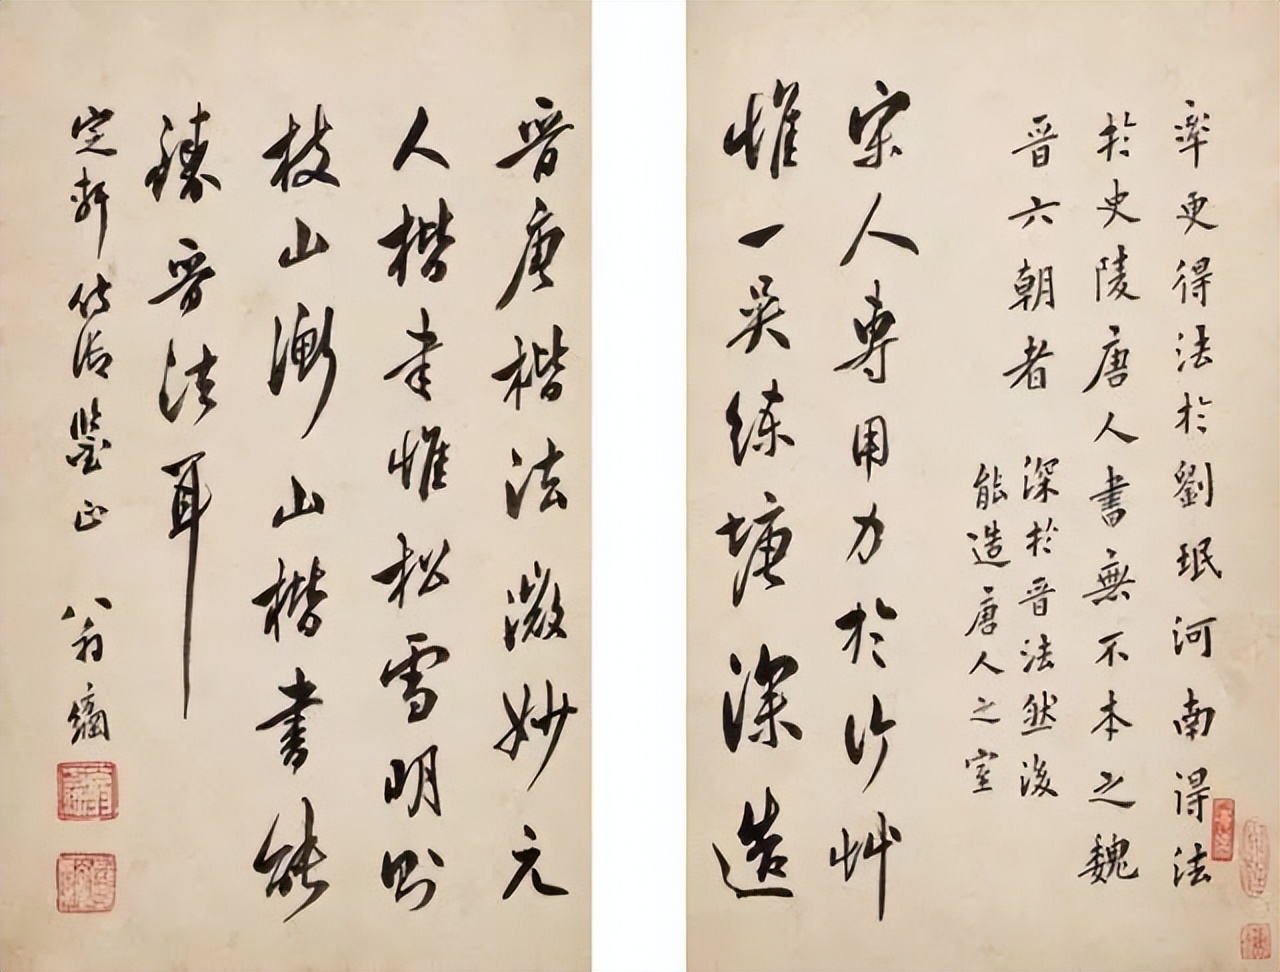 率更得法於劉珉河南得法
於史陵唐人書無不本之魏
晋六朝者
深於晋法然後
能造唐人之室
宋人專用力於行艸
惟一吴練塘深造
晋唐楷法微妙元
人楷書惟松雪明則
枝山衡山楷書能
臻晋法耳
定軒侍御鑒正
八翁